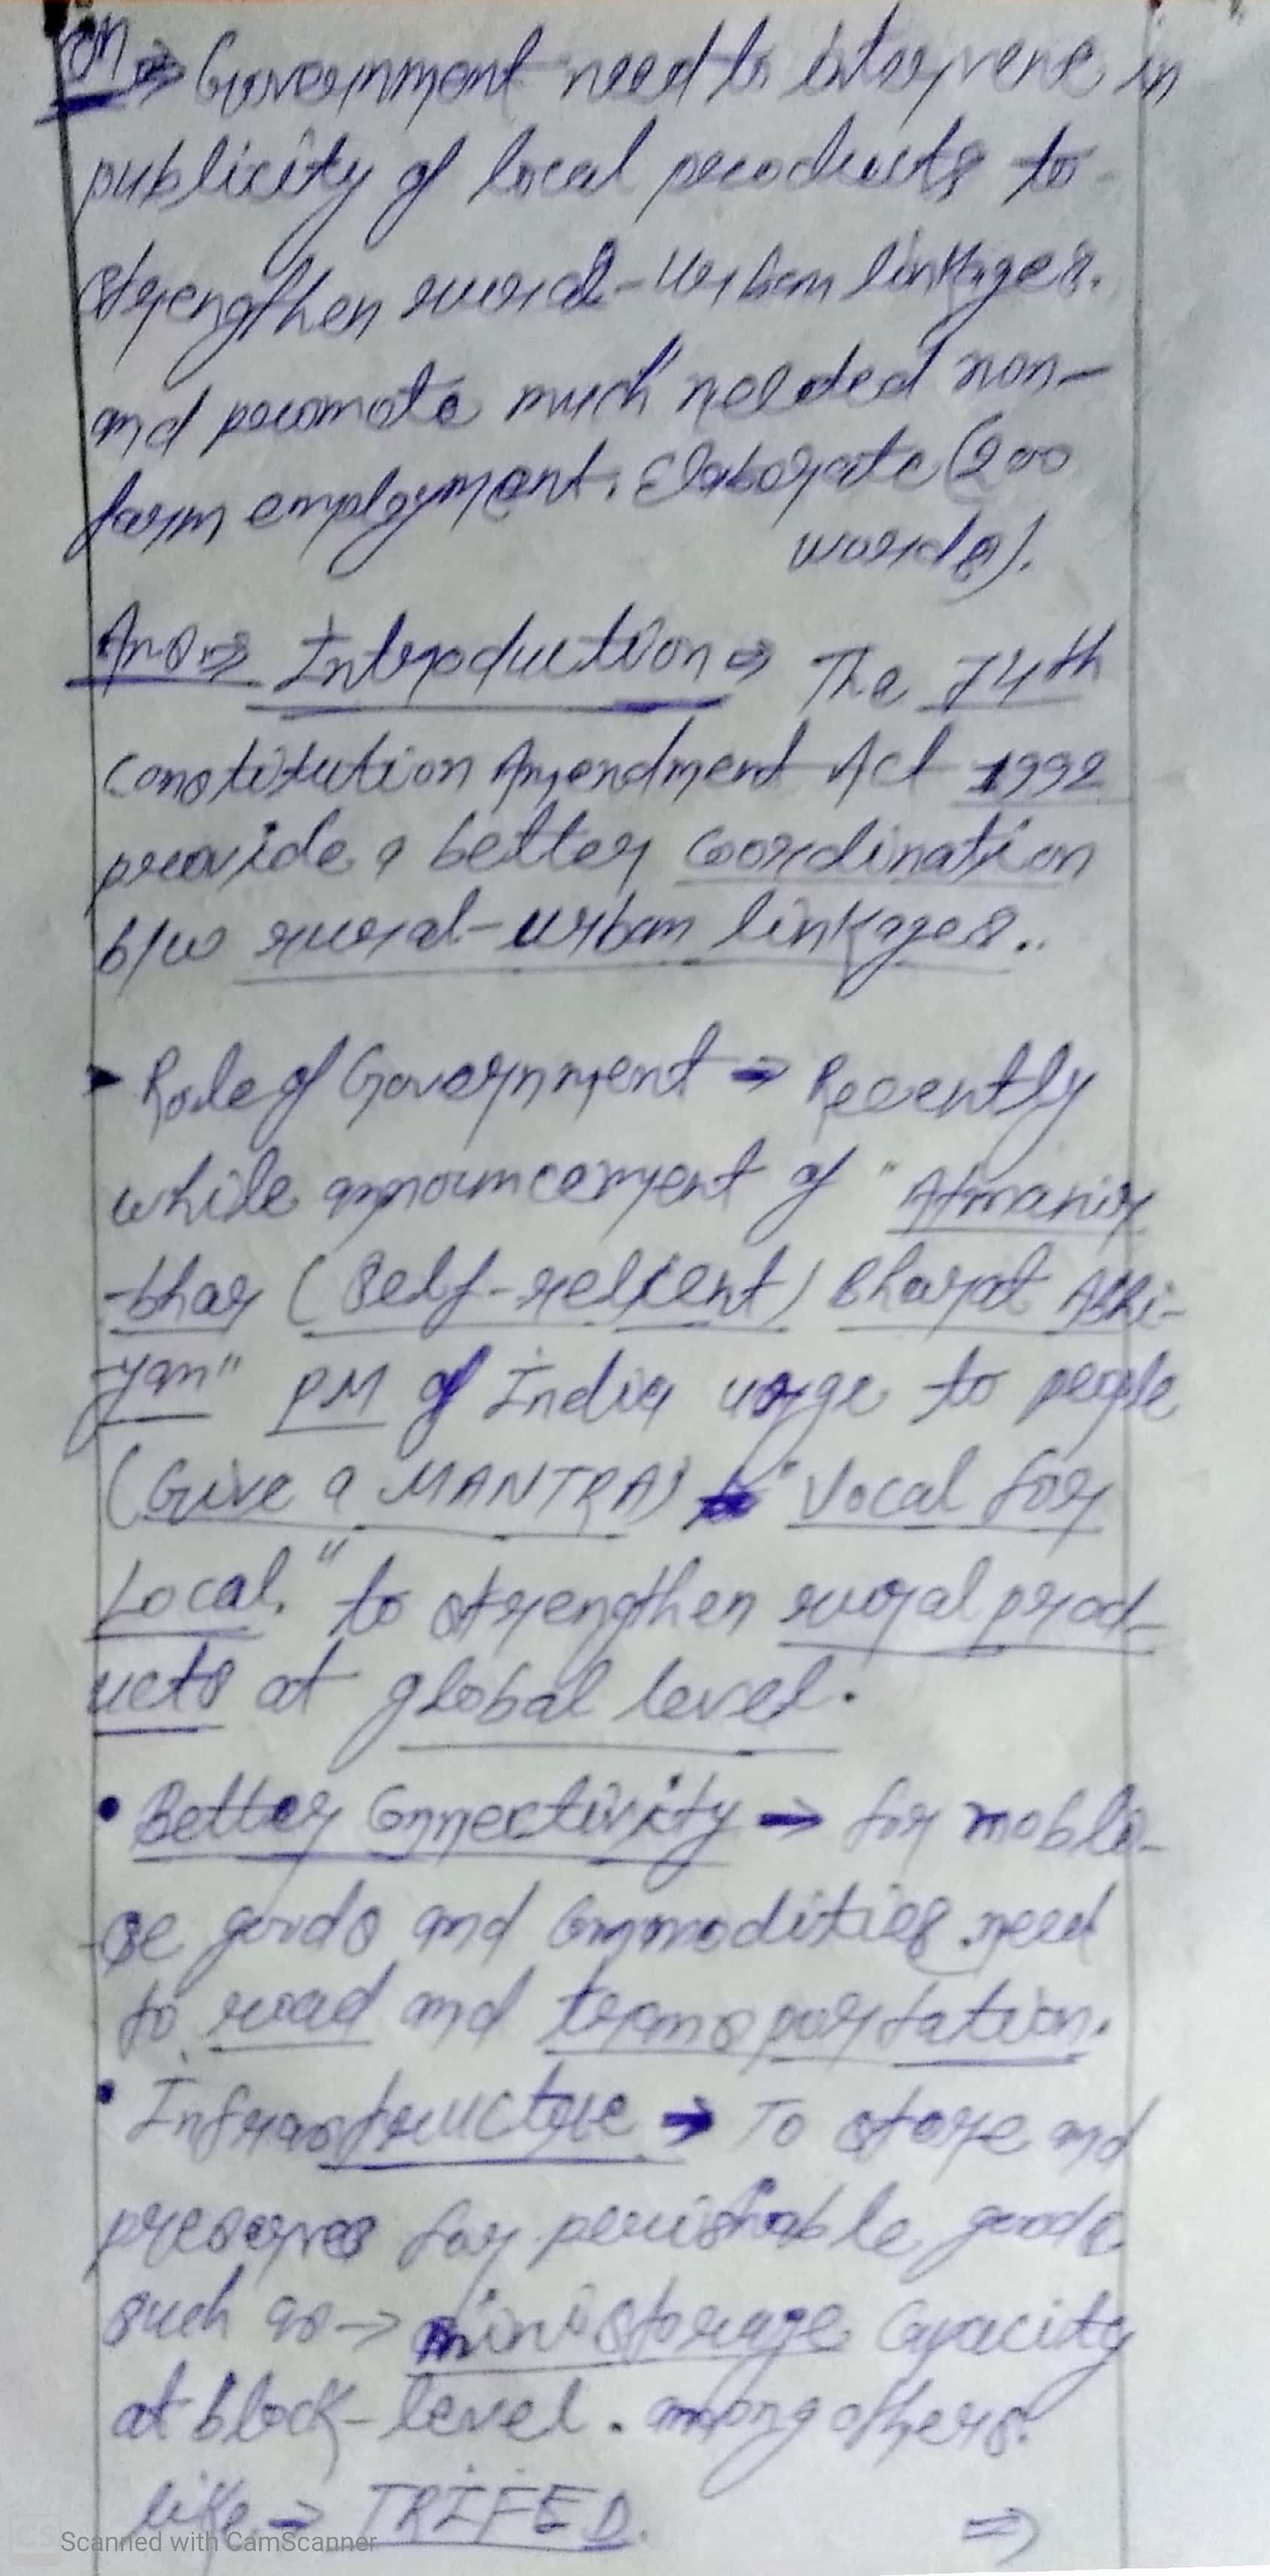 Qn ⇒ Government need to intervene in
publicity of local products to
strengthen rural-urban linkages.
and promote much needed non-
farm employment. Elaborate (200
words).
Ans ⇒ Introduction ⇒ The 74th
Constitution Amendment Act 1992
provide a better coordination
b/w rural-urban linkages..
▸ Role of Government ⇒ Recently
while announcement of "Atmanir
-bhar (Self-relient) Bharat Abhi-
-yan" PM of India urge to people
(Give a MANTRA) "Vocal for
Local." to strengthen rural prod-
ucts at global level.
• Better Connectivity → for mobli-
-se goods and commodities need
to road and transportation.
• Infrastructure → To store and
preserves for perishable goods
such as → mini storage capacity
at block-level. among others.
like ⇒ TRIFED. ⇒
Scanned with CamScanner